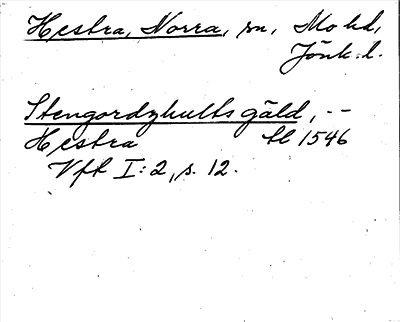 Hestra, Norra, sn, Mo hd,
Jönk. l.
Stengordzhults gäld, --
Hestra tl 1546
Vft I:2, s. 12.